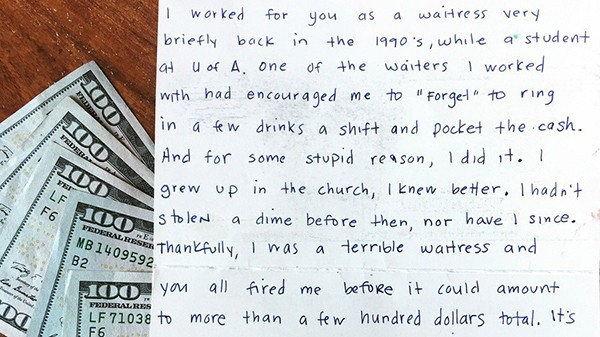 I worked for you as a waitress very
briefly back in the 1990's, while a student
at U of A. One of the waiters I worked
with had encouraged me to "forget" to ring
in a few drinks a shift and pocket the cash.
And for some stupid reason, I did it. I
grew up in the church, I knew better. I hadn't
stolen a dime before then, nor have I since.
Thankfully, I was a terrible waitress and
you all fired me before it could amount
to more than a few hundred dollars total. It's
100
100
100
LF
F6
100
FEDERAL RESERVE
MB1409592
B2
100
FEDERAL RESERVE
LF71038
F6